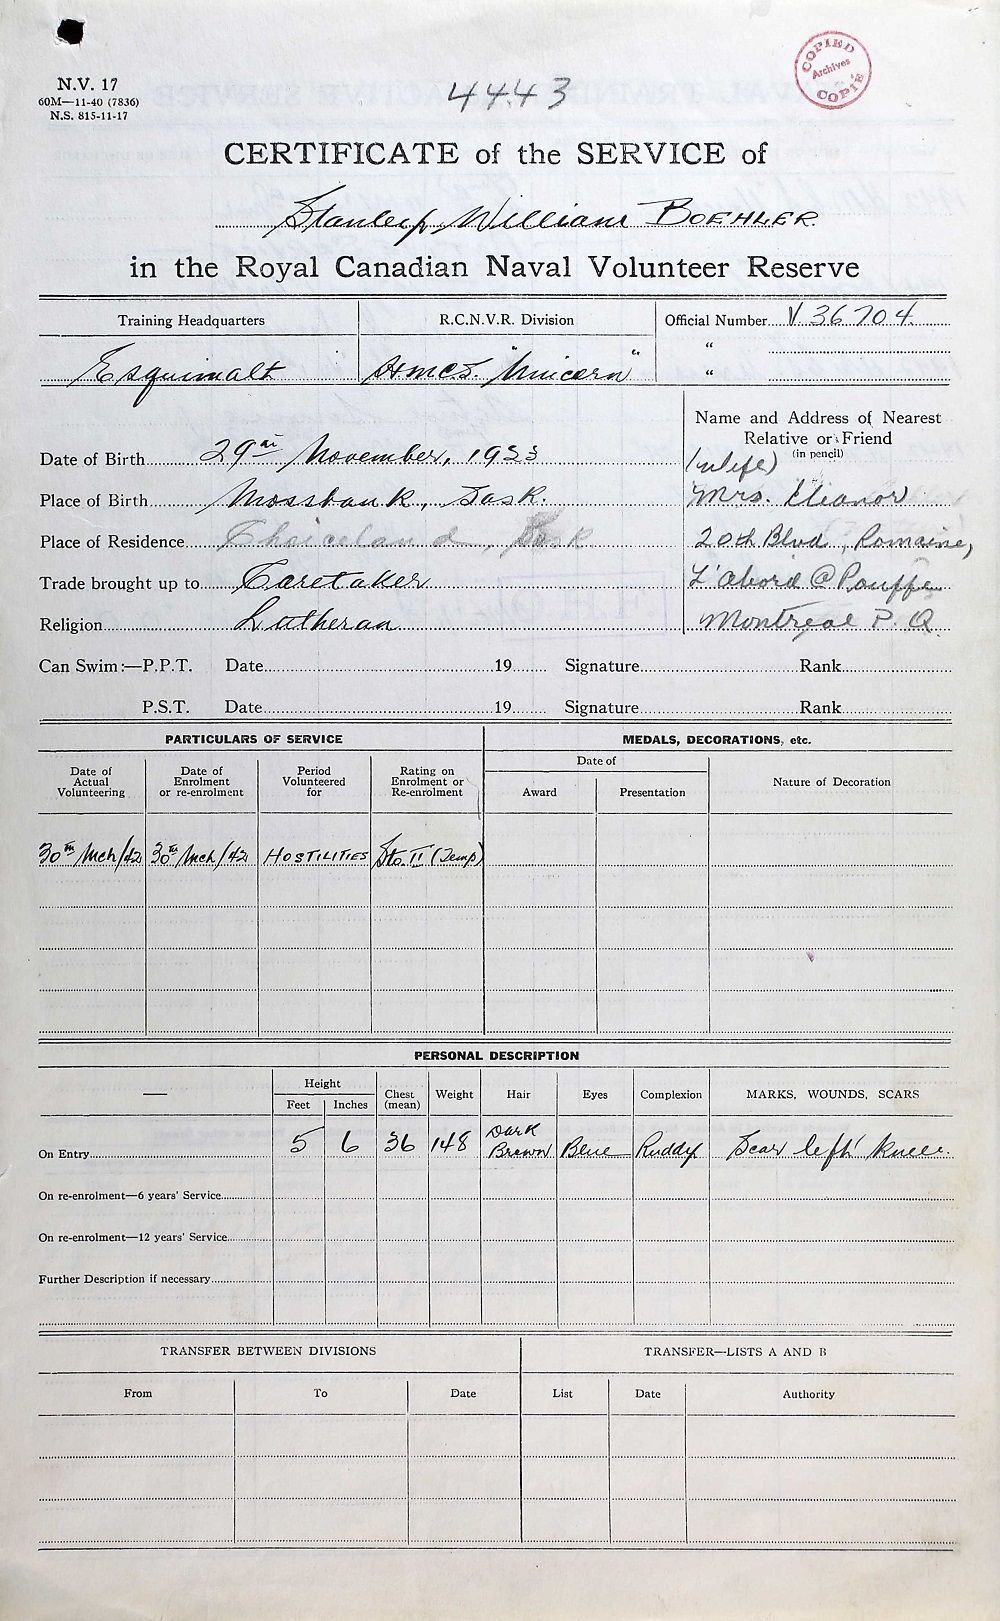 N.V. 17
60M—11-40 (7836)
N.S. 815-11-17
4443
COPIED
Archives
COPIÉ
CERTIFICATE of the SERVICE of
Stanley William BOEHLER.
in the Royal Canadian Naval Volunteer Reserve
Training Headquarters R.C.N.V.R. Division Official Number V 36704
"
Esquimalt HMCS. "Unicorn" "
Name and Address of Nearest
Relative or Friend
(in pencil)
Date of Birth 29th November, 1923 (wife)
Place of Birth Mossbank, Sask. Mrs. Eleanor
Place of Residence Choiceland, Sask 20th Blvd, Romaine,
Trade brought up to Caretaker L'abord @ Pouffe
Religion Lutheran Montreal P.Q.
Can Swim:—P.P.T. Date 19 Signature Rank
P.S.T. Date 19 Signature Rank
PARTICULARS OF SERVICE MEDALS, DECORATIONS, etc.
Date of Actual Volunteering Date of Enrolment or re-enrolment Period Volunteered for Rating on Enrolment or Re-enrolment Date of Award Presentation Nature of Decoration
30th Mch/42 30th Mch/42 HOSTILITIES Sto. II (Temp)
PERSONAL DESCRIPTION
— Height Feet Inches Chest (mean) Weight Hair Eyes Complexion MARKS, WOUNDS, SCARS
On Entry 5 6 36 148 Dark Brown Blue Ruddy Scar left knee.
On re-enrolment—6 years' Service
On re-enrolment—12 years' Service
Further Description if necessary
TRANSFER BETWEEN DIVISIONS TRANSFER—LISTS A AND B
From To Date List Date Authority